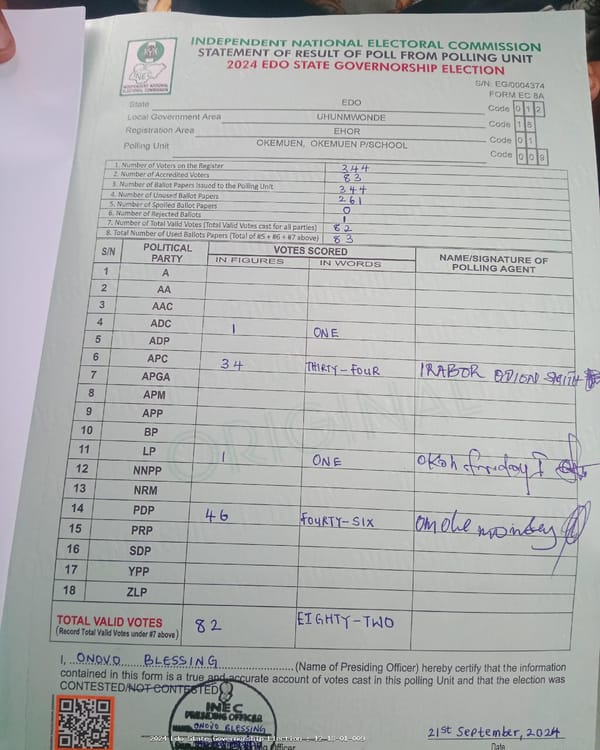 INDEPENDENT NATIONAL ELECTORAL COMMISSION
STATEMENT OF RESULT OF POLL FROM POLLING UNIT
2024 EDO STATE GOVERNORSHIP ELECTION
INEC
INDEPENDENT NATIONAL ELECTORAL COMMISSION
S/N: EG/0004374
FORM EC 8A
State EDO Code 0 1 2
Local Government Area UHUNMWONDE Code 1 8
Registration Area EHOR Code 0 1
Polling Unit OKEMUEN, OKEMUEN P/SCHOOL Code 0 0 9
1. Number of Voters on the Register 344
2. Number of Accredited Voters 83
3. Number of Ballot Papers Issued to the Polling Unit 344
4. Number of Unused Ballot Papers 261
5. Number of Spoiled Ballot Papers 0
6. Number of Rejected Ballots 1
7. Number of Total Valid Votes (Total Valid Votes cast for all parties) 82
8. Total Number of Used Ballots Papers (Total of #5 + #6 + #7 above) 83
S/N POLITICAL PARTY VOTES SCORED NAME/SIGNATURE OF POLLING AGENT
IN FIGURES IN WORDS
1 A
2 AA
3 AAC
4 ADC 1 ONE
5 ADP
6 APC 34 THIRTY-FOUR IRABOR ODION SMITH
7 APGA
8 APM
9 APP
10 BP
11 LP 1 ONE Okoh friday I
12 NNPP
13 NRM
14 PDP 46 FOURTY-SIX Omohe monday
15 PRP
16 SDP
17 YPP
18 ZLP
ORIGINAL
TOTAL VALID VOTES 82 EIGHTY-TWO
(Record Total Valid Votes under #7 above)
I, ONOVO BLESSING (Name of Presiding Officer) hereby certify that the information
contained in this form is a true and accurate account of votes cast in this polling Unit and that the election was
CONTESTED/NOT CONTESTED
INEC
PRESIDING OFFICER
ONOVO BLESSING
21st September, 2024
2024 Edo State Governorship Election : 12-18-01-009
Officer
Date